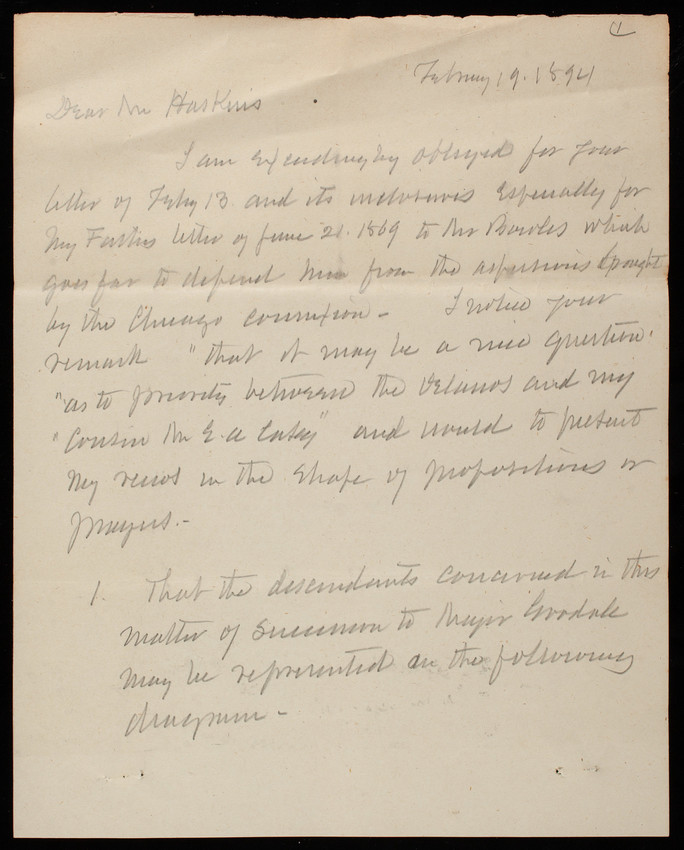 February 19. 1894
Dear Mr Haskins
I am exceedingly obliged for your
letter of Feby 13 and its inclosures especially for
My Fathers letter of June 21. 1869 to Mr Bowles which
goes far to defend him from the aspersions brought
by the Chicago connexion - I notice your
remark "that it may be a nice question
"as to priority between the and my
"Cousin Mr E. A. Casey" and would to present
my views in the shape of propositions or
prayers.-
1. That the descendants concerned in this
matter of succession to Major Goodale
may be represented in the following
diagram -